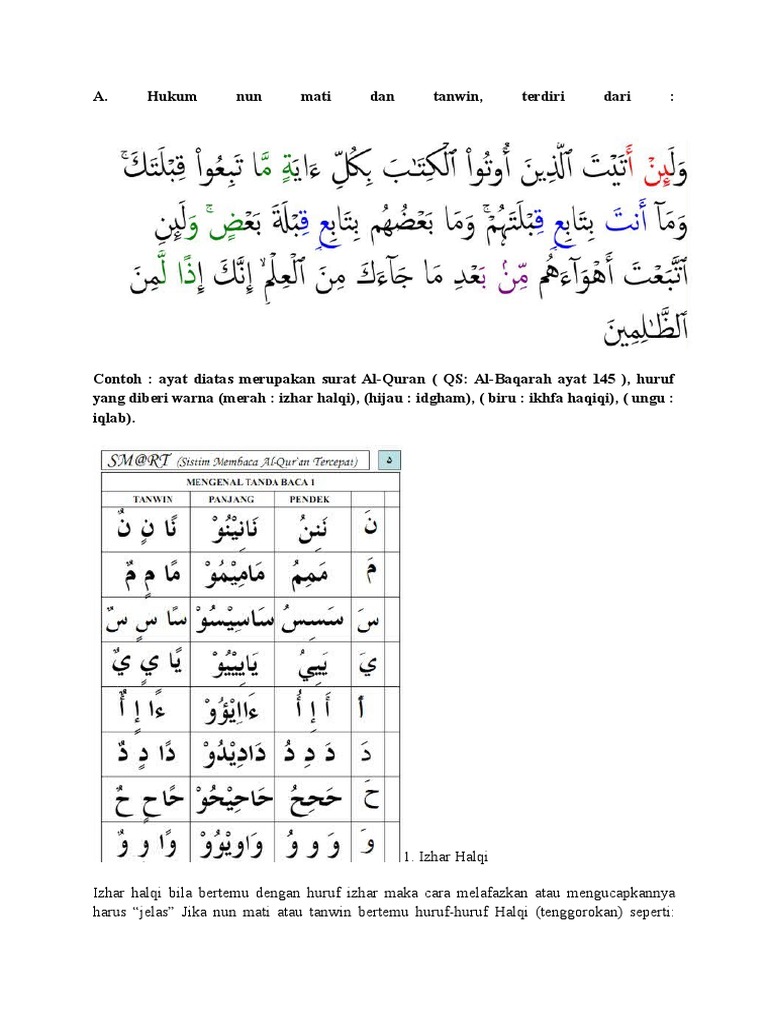 A. Hukum nun mati dan tanwin, terdiri dari :
وَلَئِنْ أَتَيْتَ ٱلَّذِينَ أُوتُوا۟ ٱلْكِتَـٰبَ بِكُلِّ ءَايَةٍ مَّا تَبِعُوا۟ قِبْلَتَكَ ۚ
وَمَآ أَنتَ بِتَابِعٍ قِبْلَتَهُمْ ۚ وَمَا بَعْضُهُم بِتَابِعٍ قِبْلَةَ بَعْضٍ ۚ وَلَئِنِ
ٱتَّبَعْتَ أَهْوَآءَهُم مِّنۢ بَعْدِ مَا جَآءَكَ مِنَ ٱلْعِلْمِ ۙ إِنَّكَ إِذًا لَّمِنَ
ٱلظَّـٰلِمِينَ
Contoh : ayat diatas merupakan surat Al-Quran ( QS: Al-Baqarah ayat 145 ), huruf
yang diberi warna (merah : izhar halqi), (hijau : idgham), ( biru : ikhfa haqiqi), ( ungu :
iqlab).
SM@RT (Sistim Membaca Al-Qur'an Tercepat) ٥
MENGENAL TANDA BACA 1
TANWIN PANJANG PENDEK
نَ نَنِنُ نَانِيْنُوْ نًا نٍ نٌ
مَ مَمِمُ مَامِيْمُوْ مًا مٍ مٌ
سَ سَسِسُ سَاسِيْسُوْ سًا سٍ سٌ
يَ يَيِيُ يَايِيْيُوْ يًا يٍ يٌ
أَ أَ إِ أُ ءَاإِيْؤُوْ ءًا إٍ أٌ
دَ دَ دِ دُ دَادِيْدُوْ دًا دٍ دٌ
حَ حَحِحُ حَاحِيْحُوْ حًا حٍ حٌ
وَ وَ وِ وُ وَاوِيْوُوْ وًا وٍ وٌ
1. Izhar Halqi
Izhar halqi bila bertemu dengan huruf izhar maka cara melafazkan atau mengucapkannya
harus “jelas” Jika nun mati atau tanwin bertemu huruf-huruf Halqi (tenggorokan) seperti: